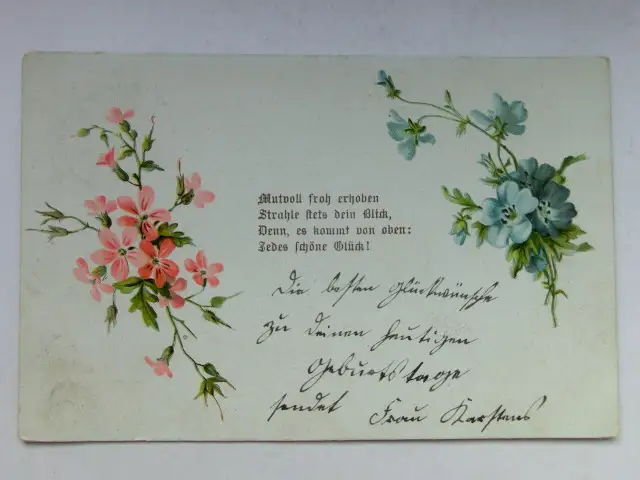 Mutvoll froh erhoben
Strahle stets dein Blick,
Denn, es kommt von oben:
Jedes schöne Glück!
Die besten Glückwünsche
zu deinem heutigen
Geburtstage
sendet Frau Karstens